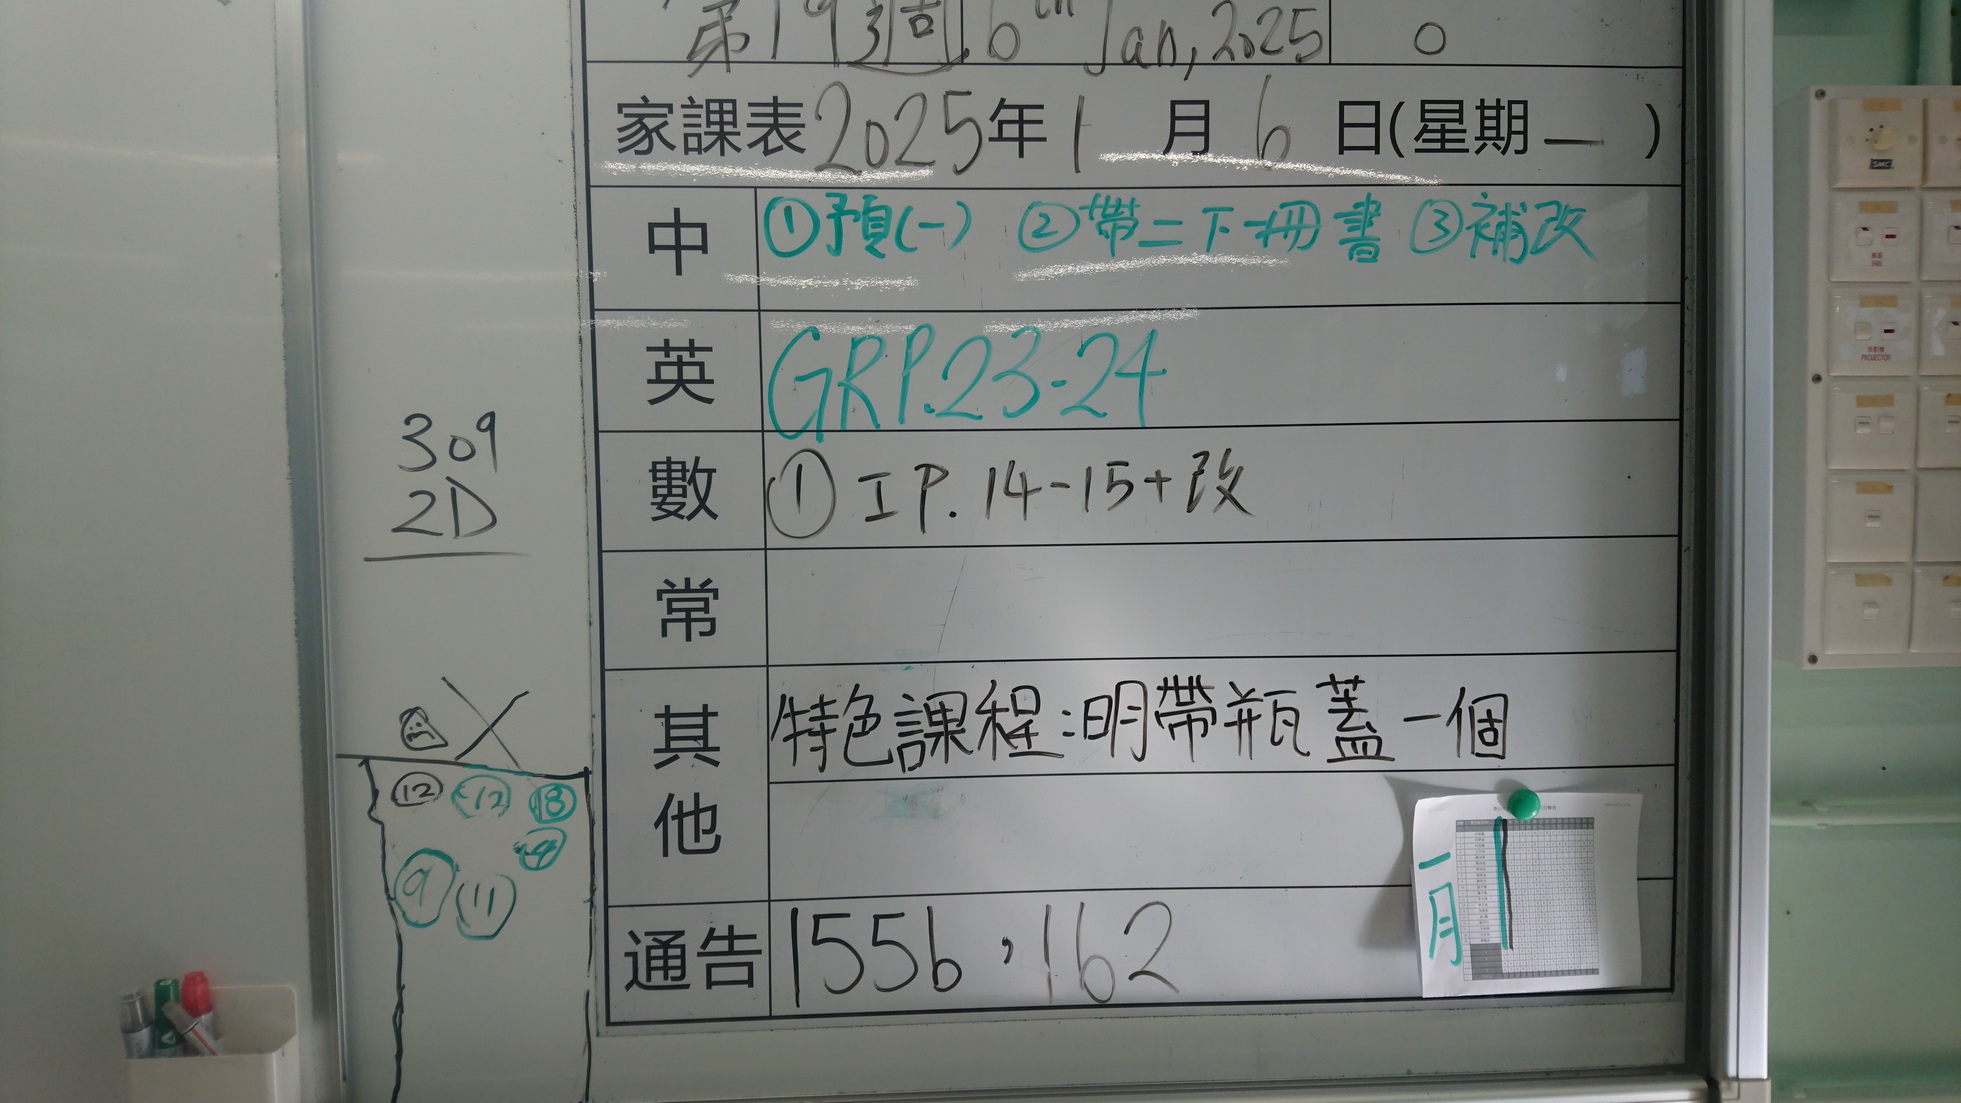 第19週 6th Jan, 2025 0
家課表 2025年1月6日(星期一)
中 ①預(一) ②帶二下一冊書 ③補改
英 GRP.23-24
數 ① IP.14-15+改
常
其他 特色課程:明帶瓶蓋一個
通告 155b,162
309
2D
⑫ ⑫ ⑱
⑨ ⑪
一月
SMC
PROJECTOR